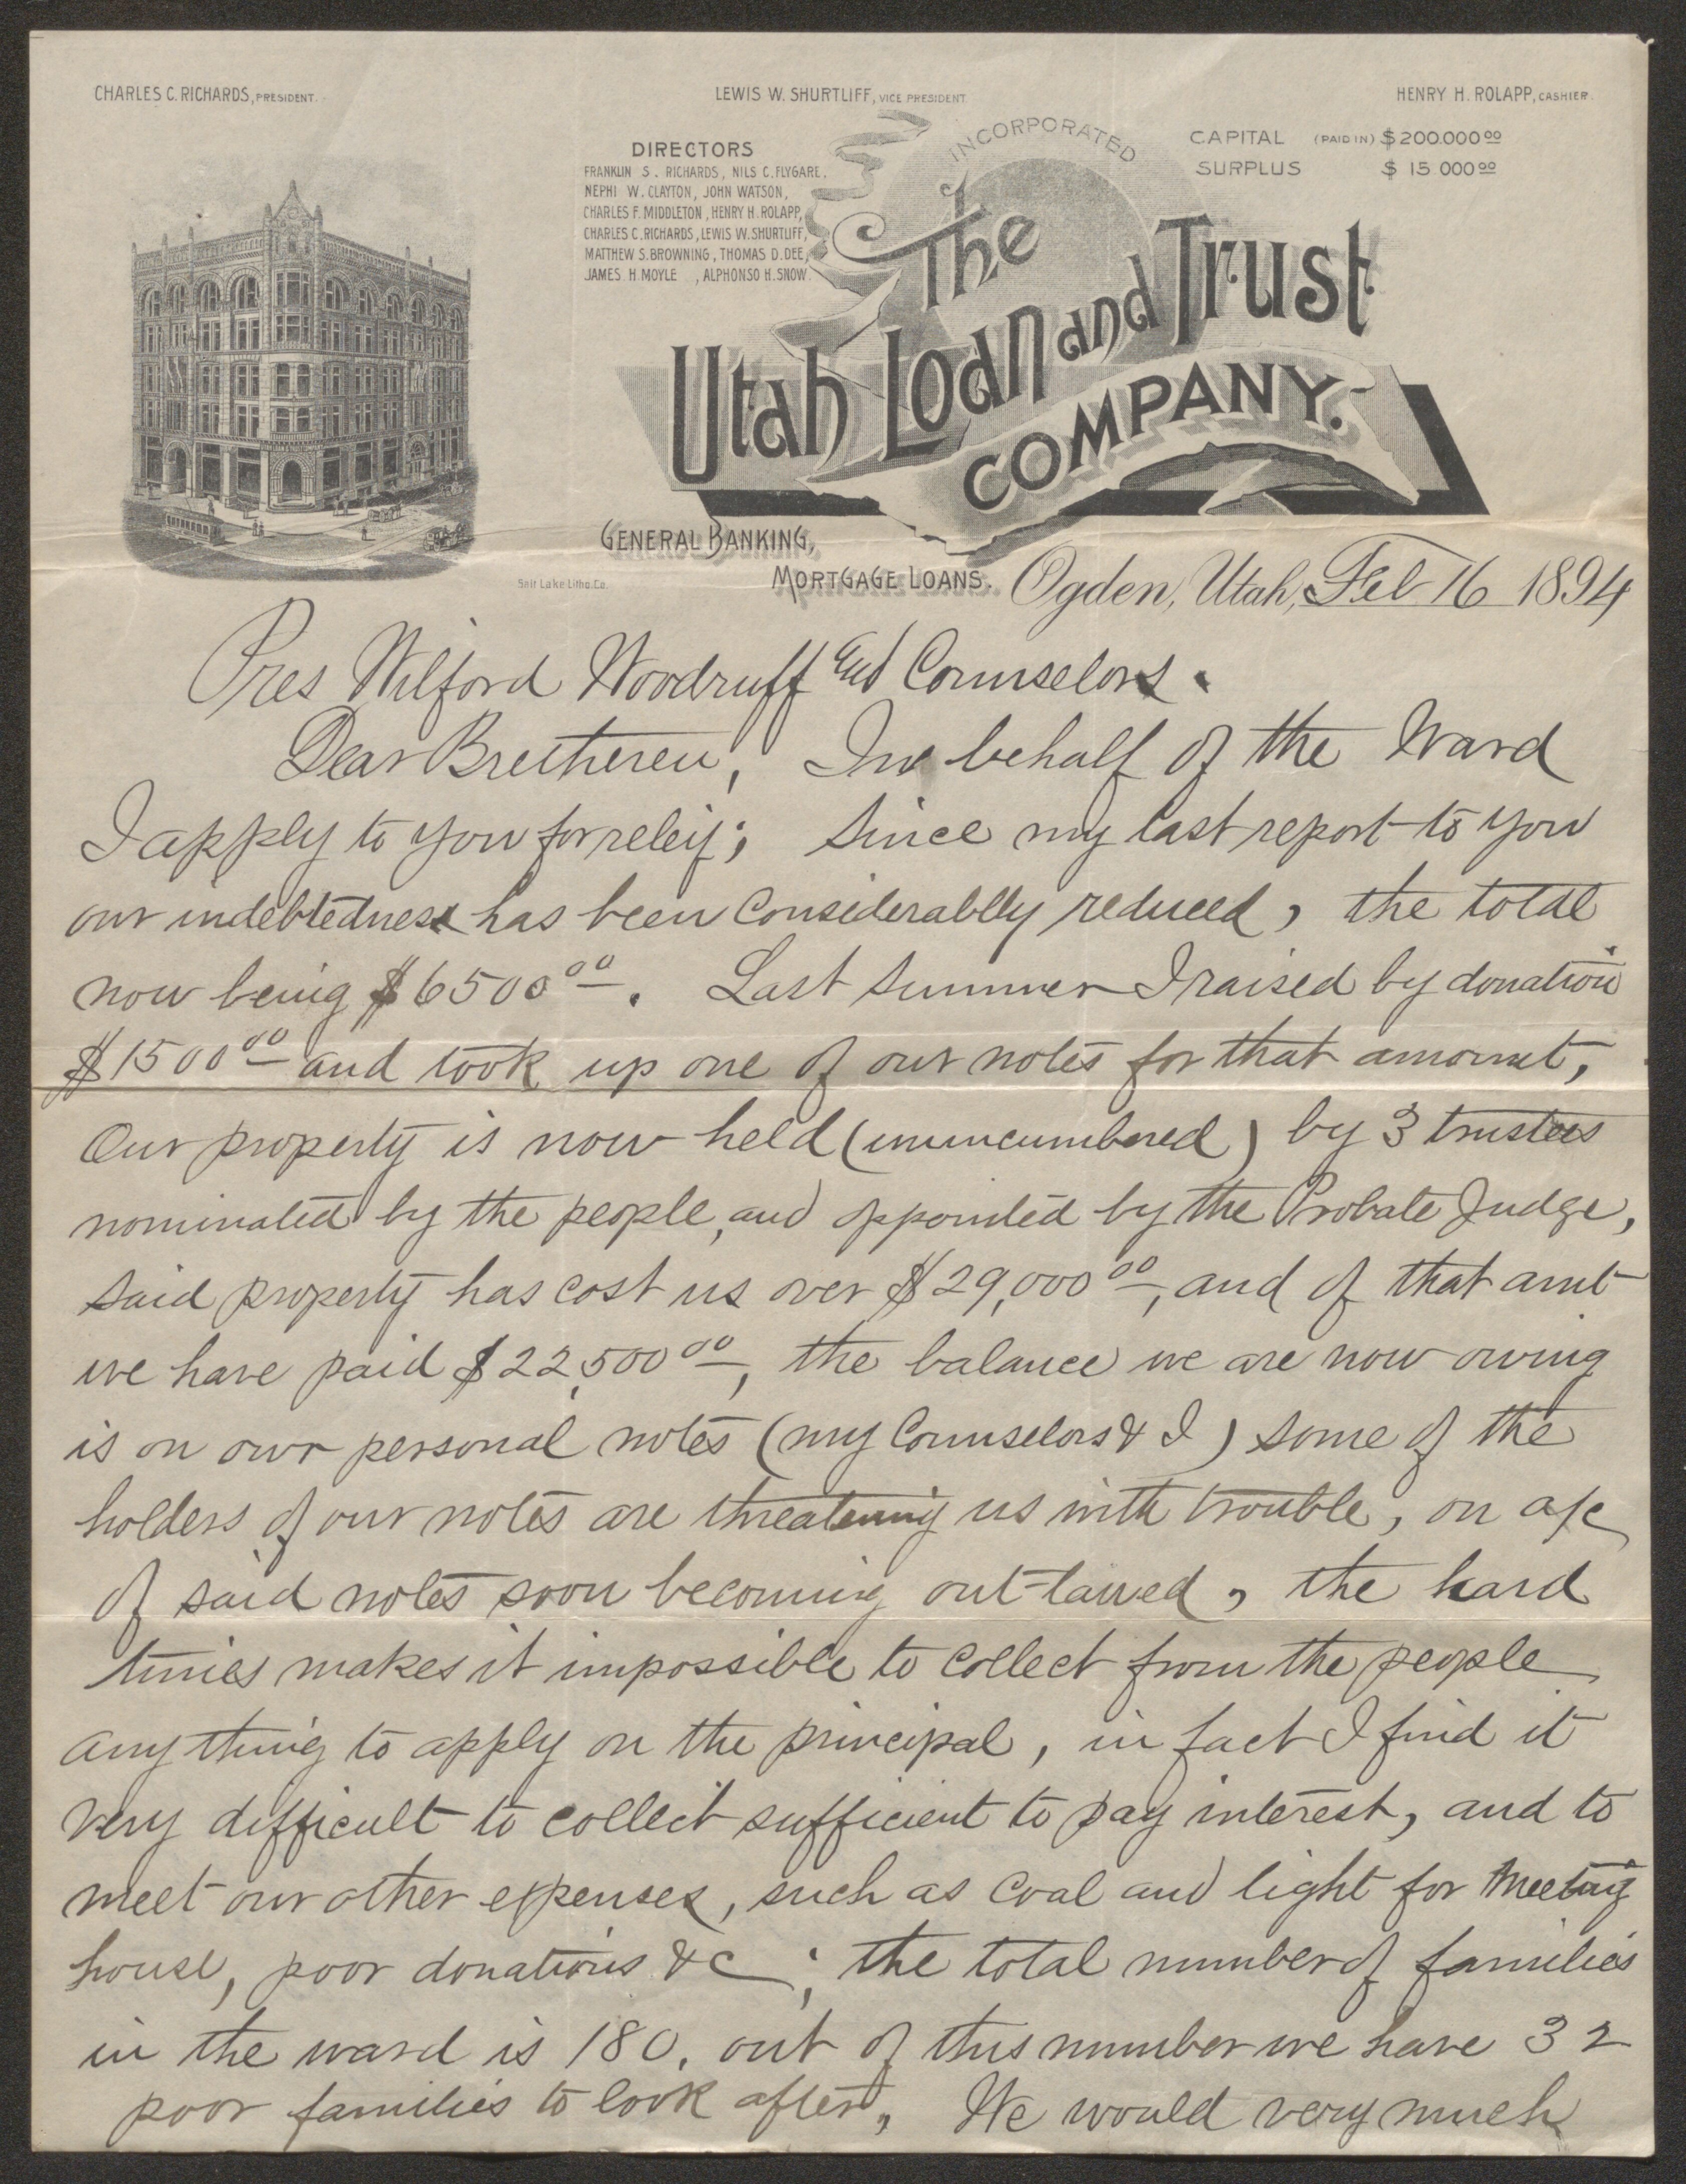 CHARLES C. RICHARDS, PRESIDENT.
LEWIS W. SHURTLIFF, VICE PRESIDENT
HENRY H. ROLAPP, CASHIER.
DIRECTORS
FRANKLIN S. RICHARDS, NILS C. FLYGARE,
NEPHI W. CLAYTON, JOHN WATSON,
CHARLES F. MIDDLETON, HENRY H. ROLAPP,
CHARLES C. RICHARDS, LEWIS W. SHURTLIFF,
MATTHEW S. BROWNING, THOMAS D. DEE,
JAMES H. MOYLE, ALPHONSO H. SNOW.
INCORPORATED
CAPITAL (PAID IN) $200.000 00
SURPLUS $ 15 000 00
The
Utah Loan and Trust
COMPANY.
GENERAL BANKING,
MORTGAGE LOANS.
Salt Lake Litho. Co.
Ogden, Utah, Feb 16 1894
Pres Wilford Woodruff and Counselors.
Dear Bretheren, In behalf of the Ward
I apply to you for releif; Since my last report to you
our indebtedness has been considerablly reduced, the total
now being $6500 00. Last Summer I raised by donation
$1500 00 and took up one of our notes for that amount,
Our property is now held (unincumbered) by 3 trustees
nominated by the people, and appointed by the Probate Judge,
said property has cost us over $29,000 00, and of that amt
we have paid $22,500 00, the balance we are now owing
is on our personal notes (my Counselors & I) some of the
holders of our notes are threatening us with trouble, on a/c
of said notes soon becoming out-lawed, the hard
times makes it impossible to collect from the people
any thing to apply on the principal, in fact I find it
very difficult to collect sufficient to pay interest, and to
meet our other expenses, such as coal and light for Meeting
house, poor donations &c; the total number of families
in the ward is 180, out of this number we have 32
poor families to look after, We would very much